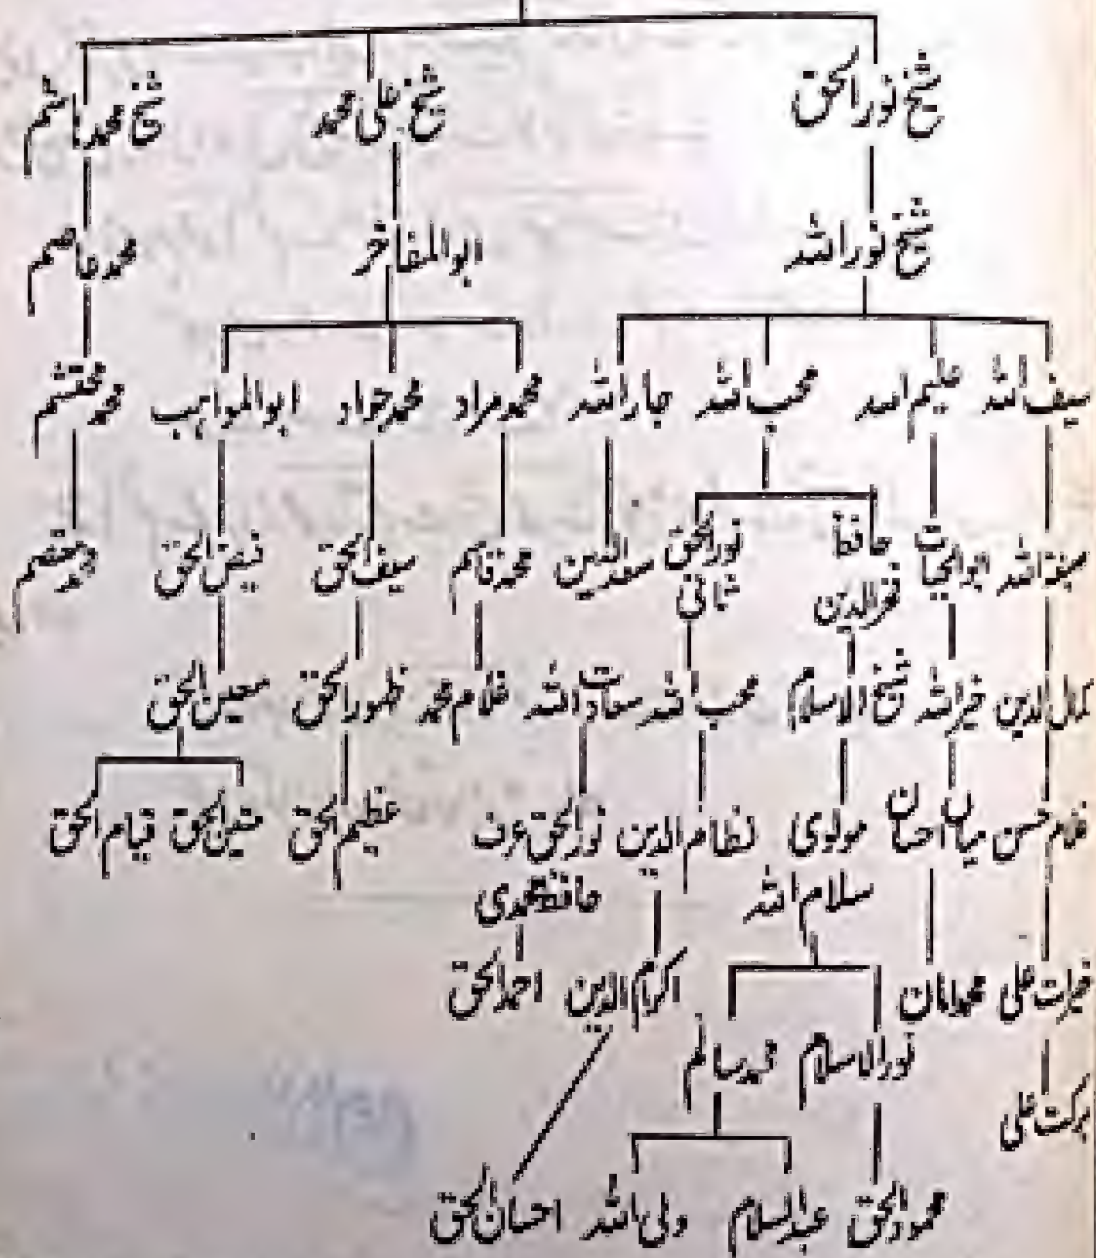 شیخ نورالحق شیخ علی محمد شیخ محمد ہاشم
شیخ نوراللہ ابوالمفاخر محمد عاصم
سیف اللہ علیم اللہ محب اللہ جاراللہ محمد مراد محمد جواد ابوالمواہب محمد محتشم
ابوالحیات حافظ نورالحق سعدالدین محمد قاسم سیف الحق فیض الحق
فخرالدین ثانی
کمال الدین خیراللہ شیخ الاسلام محب اللہ سعادت اللہ غلام محمد ظہورالحق معین الحق
غلام حسن میاں احسان مولوی نظام الدین نورالحق عرف عظیم الحق متین الحق قیام الحق
سلام اللہ حافظ محمدی
خیرات علی اکرام الدین احمدالحق
نورالاسلام محمد سالم
برکت علی
محمودالحق عبدالسلام ولی اللہ احسان الحق